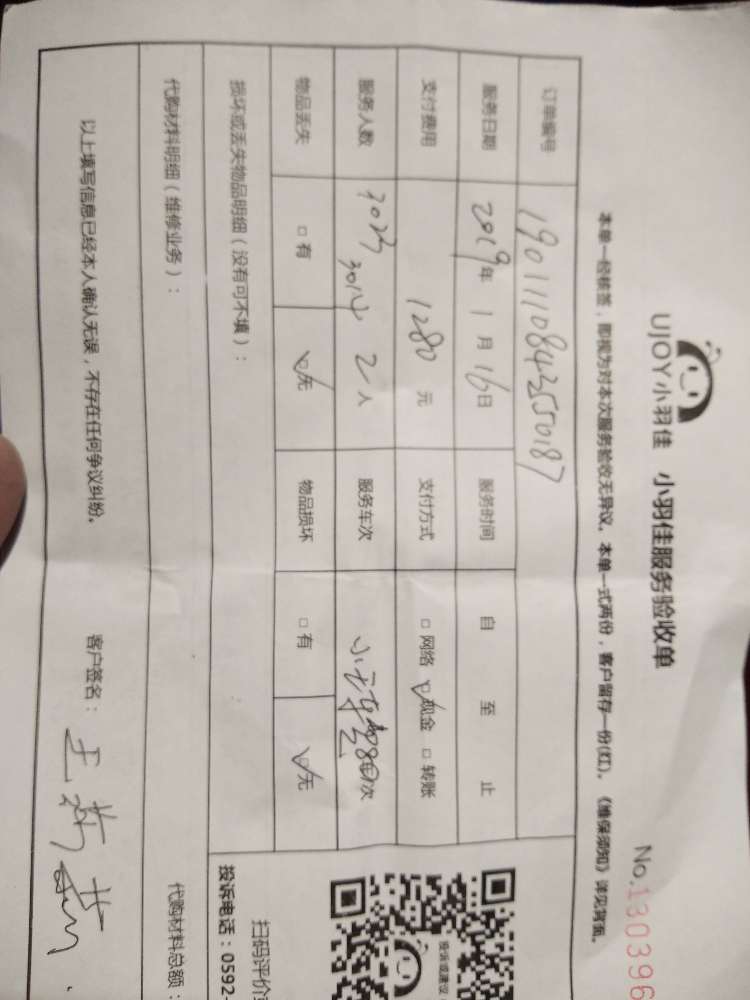 UJOY小羽佳 小羽佳服务验收单
No.130396
本单一经核签，即视为对本次服务验收无异议。本单一式两份，客户留存一份(红)。《维保须知》详见背面。
订单编号 1901110843550187
服务日期 2019年 1月 16日 服务时间 自 至 止
支付费用 1280 元 支付方式 □ 网络 ☑ 现金 □ 转账
服务人数 2人 服务车次 车次
物品丢失 □ 有 ☑ 无 物品损坏 □ 有 ☑ 无
损坏或丢失物品明细（没有可不填）：
代购材料明细（维修业务）：
代购材料总额：
以上填写信息已经本人确认无误，不存在任何争议纠纷。 客户签名：
投诉或建议
扫码评价
投诉电话：0592-